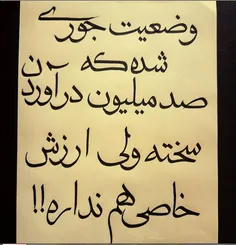 وضعیت جوری
شده که
صد میلیون درآوردن
سخته ولی ارزش
خاصی هم نداره!!